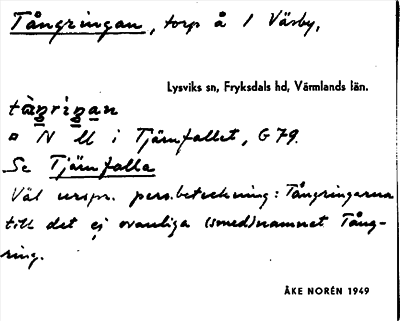 Tångringan, torp å 1 Väsby,
Lysviks sn, Fryksdals hd, Värmlands län.
tàŋriŋan
¤ N ll i Tjärnfallet, G 79.
Se Tjärnfalla
Väl urspr. pers.beteckning: Tångringarna
till det ej ovanliga (smed)namnet Tång-
ring.
ÅKE NORÉN 1949